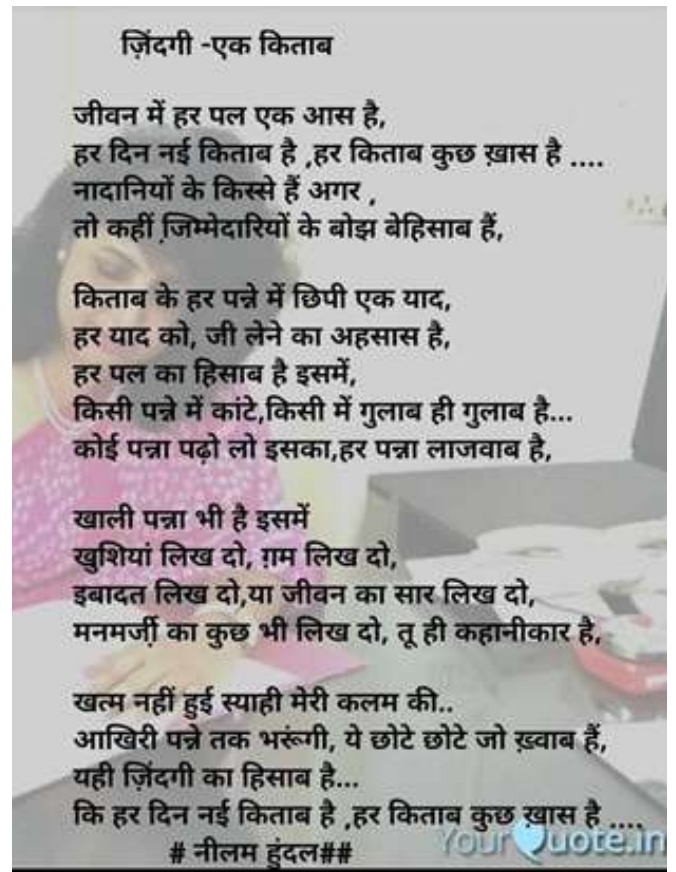 ज़िंदगी -एक किताब
जीवन में हर पल एक आस है,
हर दिन नई किताब है ,हर किताब कुछ ख़ास है ....
नादानियों के किस्से हैं अगर ,
तो कहीं जिम्मेदारियों के बोझ बेहिसाब हैं,
किताब के हर पन्ने में छिपी एक याद,
हर याद को, जी लेने का अहसास है,
हर पल का हिसाब है इसमें,
किसी पन्ने में कांटे,किसी में गुलाब ही गुलाब है...
कोई पन्ना पढ़ो लो इसका,हर पन्ना लाजवाब है,
खाली पन्ना भी है इसमें
खुशियां लिख दो, ग़म लिख दो,
इबादत लिख दो,या जीवन का सार लिख दो,
मनमर्ज़ी का कुछ भी लिख दो, तू ही कहानीकार है,
खत्म नहीं हुई स्याही मेरी कलम की..
आखिरी पन्ने तक भरूंगी, ये छोटे छोटे जो ख़्वाब हैं,
यही ज़िंदगी का हिसाब है...
कि हर दिन नई किताब है ,हर किताब कुछ ख़ास है ....
# नीलम हुंदल##
YourQuote.in